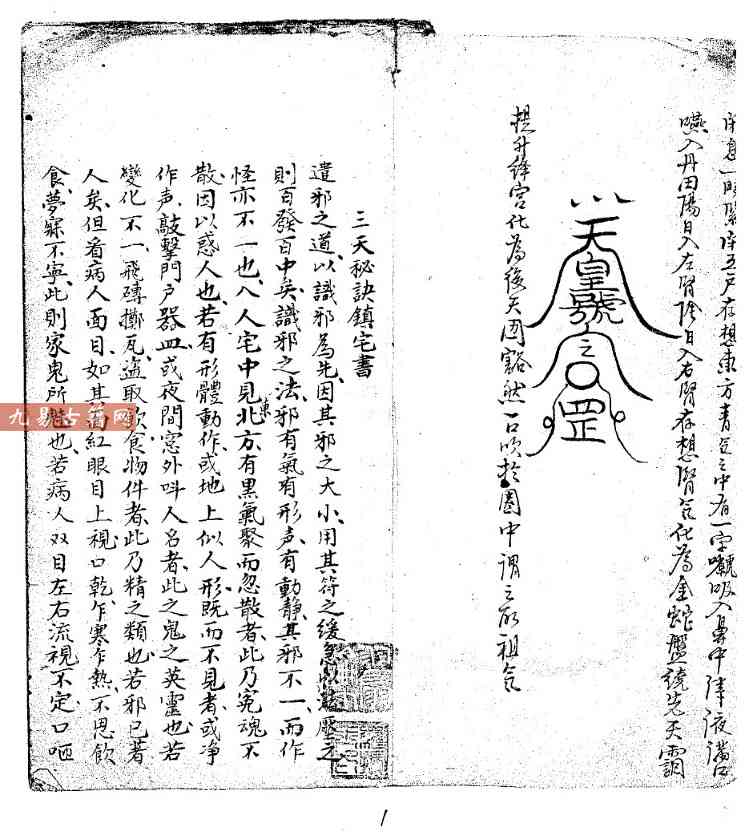 闭息一時緊闭五户存想東方青炁之中有一字
嚥入丹田陽日入左腎陰日入右腎存想腎炁化為金蛇盤繞先天罡
天皇號令
罡
提升絳宮化為後天
豁然一口吹於圈中謂之取祖炁
三天秘訣鎮宅書
遣邪之道以識邪為先因其邪之大小用其符之緩急
厭之
則百發百中矣識邪之法邪有氣有形声有動靜其邪不一而作
怪亦不一也入人宅中見北方有黑氣聚而忽散者此乃冤魂不
東
散因以惑人也若有形體動作或地上似人形既而不見者或净
作声敲擊門户器皿或夜間窓外呌人名者此之鬼之英靈也若
變化不一飛磚擲瓦盗取飲食物件者此乃精之類也若邪已著
人矣但看病人面目如其面紅眼目上視口乾乍寒乍熱不思飲
食夢寐不寧此則家鬼所魅也若病人双目左右流視不定口咂
九易古籍网
1